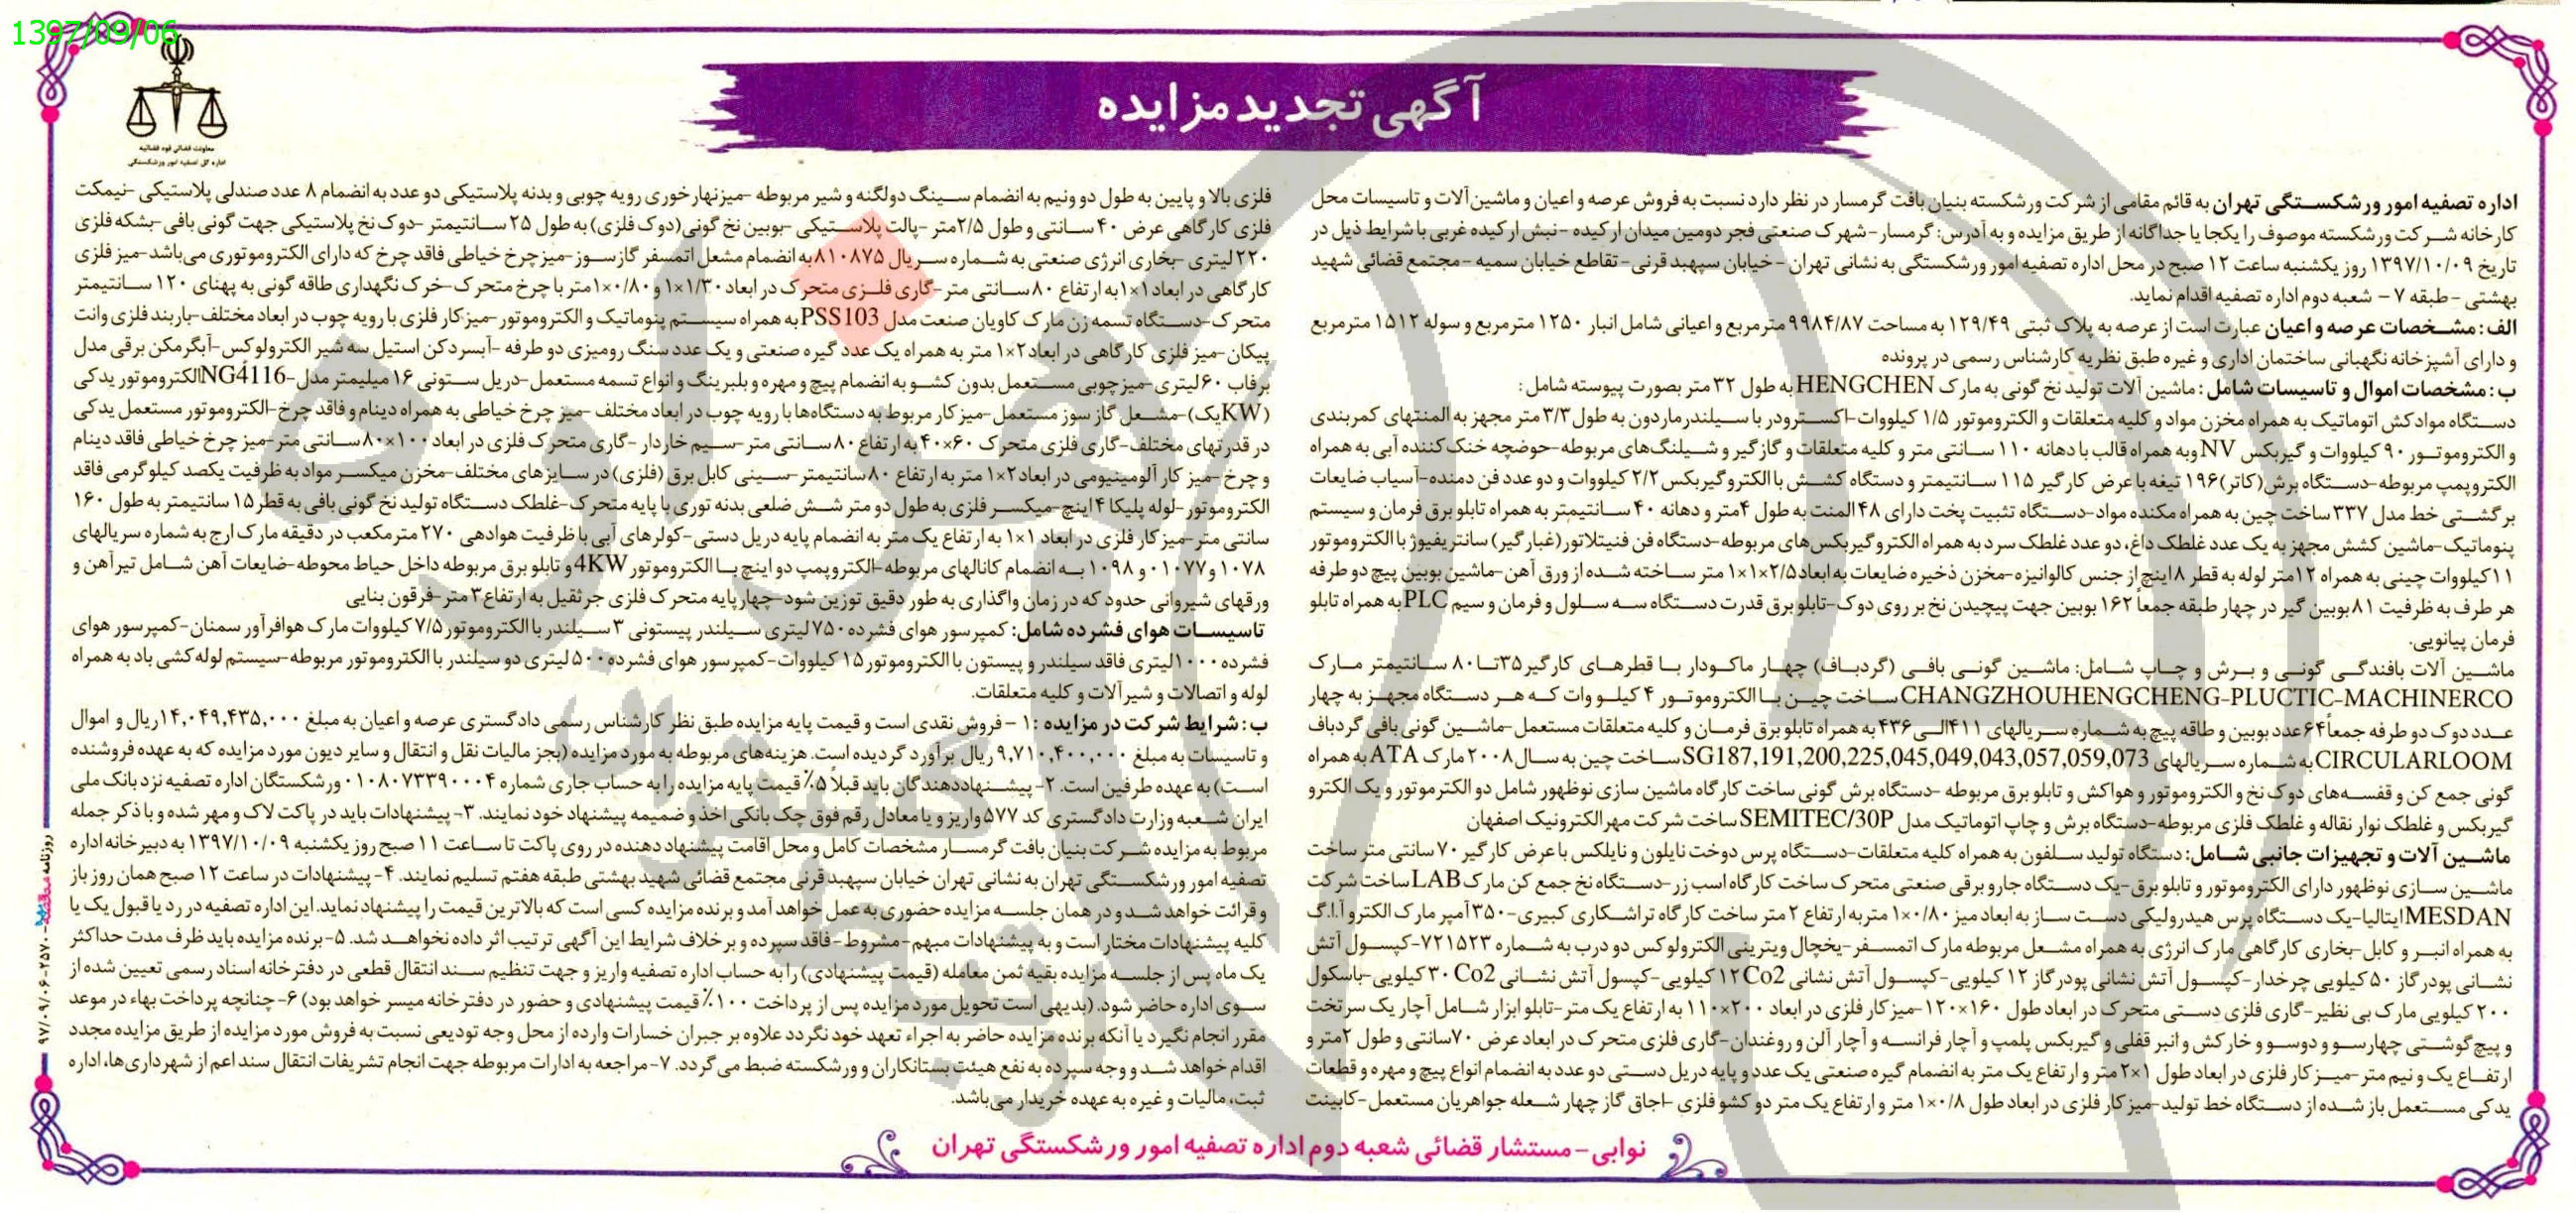 1397/09/06
معاونت قضائی قوه قضائیه
اداره کل تصفیه امور ورشکستگی
آگهی تجدید مزایده
اداره تصفیه امور ورشکستگی تهران به قائم مقامی از شرکت ورشکسته بنیان بافت گرمسار در نظر دارد نسبت به فروش عرصه و اعیان و ماشین آلات و تاسیسات محل
کارخانه شرکت ورشکسته موصوف را یکجا یا جداگانه از طریق مزایده و به آدرس: گرمسار-شهرک صنعتی فجر دومین میدان ارکیده -نبش ارکیده غربی با شرایط ذیل در
تاریخ ۱۳۹۷/۱۰/۰۹ روز یکشنبه ساعت ۱۲ صبح در محل اداره تصفیه امور ورشکستگی به نشانی تهران -خیابان سپهبد قرنی- تقاطع خیابان سمیه -مجتمع قضائی شهید
بهشتی -طبقه ۷ - شعبه دوم اداره تصفیه اقدام نماید.
الف: مشخصات عرصه و اعیان عبارت است از عرصه به پلاک ثبتی ۱۲۹/۴۹ به مساحت ۹۹۸۴/۸۷ مترمربع و اعیانی شامل انبار ۱۲۵۰ مترمربع و سوله ۱۵۱۲ مترمربع
و دارای آشپزخانه نگهبانی ساختمان اداری و غیره طبق نظریه کارشناس رسمی در پرونده
ب: مشخصات اموال و تاسیسات شامل: ماشین آلات تولید نخ گونی به مارک HENGCHEN به طول ۳۲ متر بصورت پیوسته شامل:
دستگاه مواد کش اتوماتیک به همراه مخزن مواد و کلیه متعلقات و الکتروموتور ۱/۵ کیلووات-اکسترودر با سیلندر ماردون به طول ۳/۳ متر مجهز به المنتهای کمربندی
و الکتروموتور ۹۰ کیلووات و گیربکس NV وبه همراه قالب با دهانه ۱۱۰ سانتی متر و کلیه متعلقات و گاز گیر و شیلنگ‌های مربوطه-حوضچه خنک کننده آبی به همراه
الکتروپمپ مربوطه-دستگاه برش(کاتر)۱۹۶ تیغه با عرض کارگیر ۱۱۵ سانتیمتر و دستگاه کشش با الکتروگیربکس ۲/۲ کیلووات و دو عدد فن دمنده-آسیاب ضایعات
برگشتی خط مدل ۳۳۷ ساخت چین به همراه مکنده مواد-دستگاه تثبیت پخت دارای ۴۸ المنت به طول ۴متر و دهانه ۴۰ سانتیمتر به همراه تابلو برق فرمان و سیستم
پنوماتیک-ماشین کشش مجهز به یک عدد غلطک داغ، دو عدد غلطک سرد به همراه الکتروگیربکس‌های مربوطه-دستگاه فن فنیتلاتور(غبارگیر) سانتریفیوژ با الکتروموتور
۱۱کیلووات چینی به همراه ۱۲متر لوله به قطر ۸اینچ از جنس گالوانیزه-مخزن ذخیره ضایعات به ابعاد۲/۵×۱×۱ متر ساخته شده از ورق آهن-ماشین بوبین پیچ دو طرفه
هر طرف به ظرفیت ۸۱بوبین گیر در چهار طبقه جمعاً ۱۶۲ بوبین جهت پیچیدن نخ بر روی دوک-تابلو برق قدرت دستگاه سه سلول و فرمان و سیم PLC به همراه تابلو
فرمان پیانویی.
ماشین آلات بافندگی گونی و برش و چاپ شامل: ماشین گونی بافی (گردباف) چهار ماکودار با قطرهای کارگیر۳۵تا۸۰ سانتیمتر مارک
CHANGZHOUHENGCHENG-PLUCTIC-MACHINERCO ساخت چین با الکتروموتور ۴ کیلو وات که هر دستگاه مجهز به چهار
عدد دوک دو طرفه جمعاً۶۴عدد بوبین و طاقه پیچ به شماره سریالهای ۴۱۱الی۴۳۶ به همراه تابلو برق فرمان و کلیه متعلقات مستعمل -ماشین گونی بافی گردباف
CIRCULARLOOM به شماره سریالهای SG187,191,200,225,045,049,043,057,059,073 ساخت چین به سال۲۰۰۸ مارک ATA به همراه
گونی جمع کن و قفسه‌های دوک نخ و الکتروموتور و هواکش و تابلو برق مربوطه -دستگاه برش گونی ساخت کارگاه ماشین سازی نوظهور شامل دو الکترموتور و یک الکترو
گیربکس و غلطک نوار نقاله و غلطک فلزی مربوطه-دستگاه برش و چاپ اتوماتیک مدل SEMITEC/30P ساخت شرکت مهر الکترونیک اصفهان
ماشین آلات و تجهیزات جانبی شامل: دستگاه تولید سلفون به همراه کلیه متعلقات-دستگاه پرس دوخت نایلون و نایلکس با عرض کارگیر ۷۰ سانتی متر ساخت
ماشین سازی نوظهور دارای الکتروموتور و تابلو برق-یک دستگاه جارو برقی صنعتی متحرک ساخت کارگاه اسب زر-دستگاه نخ جمع کن مارک LAB ساخت شرکت
MESDAN ایتالیا-یک دستگاه پرس هیدرولیکی دست ساز به ابعاد میز ۰/۸۰×۱ متربه ارتفاع ۲ متر ساخت کارگاه تراشکاری کبیری-۳۵۰آمپر مارک الکترو آ.ا.گ
به همراه انبر و کابل-بخاری کارگاهی مارک انرژی به همراه مشعل مربوطه مارک اتمسفر-یخچال ویترینی الکترولوکس دو درب به شماره ۷۲۱۵۲۳-کپسول آتش
نشانی پودرگاز ۵۰ کیلویی چرخدار-کپسول آتش نشانی پودرگاز ۱۲ کیلویی-کپسول آتش نشانی ۱۲Co2کیلویی-کپسول آتش نشانی ۳۰Co2 کیلویی-باسکول
۲۰۰ کیلویی مارک بی نظیر-گاری فلزی دستی متحرک در ابعاد طول ۱۶۰×۱۲۰-میز کار فلزی در ابعاد ۲۰۰×۱۱۰ به ارتفاع یک متر-تابلو ابزار شامل آچار یک سر تخت
و پیچ گوشتی چهارسو و دوسو و خارکش و انبر قفلی و گیربکس پلمپ و آچار فرانسه و آچار آلن و روغندان-گاری فلزی متحرک در ابعاد عرض ۷۰سانتی و طول ۲متر و
ارتفاع یک و نیم متر-میز کار فلزی در ابعاد طول ۱×۲ متر و ارتفاع یک متر به انضمام گیره صنعتی یک عدد و پایه دریل دستی دو عدد به انضمام انواع پیچ و مهره و قطعات
یدکی مستعمل باز شده از دستگاه خط تولید-میز کار فلزی در ابعاد طول ۰/۸×۱ متر و ارتفاع یک متر دو کشو فلزی -اجاق گاز چهار شعله جواهریان مستعمل-کابینت
فلزی بالا و پایین به طول دو ونیم به انضمام سینگ دولگنه و شیر مربوطه -میزنهارخوری رویه چوبی و بدنه پلاستیکی دو عدد به انضمام ۸ عدد صندلی پلاستیکی -نیمکت
فلزی کارگاهی عرض ۴۰ سانتی و طول ۲/۵متر -پالت پلاستیکی -بوبین نخ گونی(دوک فلزی) به طول ۲۵ سانتیمتر -دوک نخ پلاستیکی جهت گونی بافی -بشکه فلزی
۲۲۰لیتری -بخاری انرژی صنعتی به شماره سریال ۸۱۰۸۷۵به انضمام مشعل اتمسفر گازسوز-میز چرخ خیاطی فاقد چرخ که دارای الکتروموتوری می‌باشد-میز فلزی
کارگاهی در ابعاد۱×۱به ارتفاع ۸۰سانتی متر-گاری فلزی متحرک در ابعاد۱/۳۰×۱و۰/۸۰×۱متر با چرخ متحرک-خرک نگهداری طاقه گونی به پهنای ۱۲۰ سانتیمتر
متحرک-دستگاه تسمه زن مارک کاویان صنعت مدل PSS103 به همراه سیستم پنوماتیک و الکتروموتور-میز کار فلزی با رویه چوب در ابعاد مختلف-باربند فلزی وانت
پیکان-میز فلزی کارگاهی در ابعاد۲×۱ متر به همراه یک عدد گیره صنعتی و یک عدد سنگ رومیزی دو طرفه -آبسردکن استیل سه شیر الکترولوکس-آبگرمکن برقی مدل
برفاب ۶۰لیتری-میز چوبی مستعمل بدون کشو به انضمام پیچ و مهره و بلبرینگ و انواع تسمه مستعمل-دریل ستونی ۱۶ میلیمتر مدل-NG4116الکتروموتور یدکی
(KWیک)-مشعل گاز سوز مستعمل-میز کار مربوط به دستگاه‌ها با رویه چوب در ابعاد مختلف -میز چرخ خیاطی به همراه دینام و فاقد چرخ-الکتروموتور مستعمل یدکی
در قدرتهای مختلف-گاری فلزی متحرک ۶۰×۴۰به ارتفاع ۸۰سانتی متر-سیم خاردار -گاری متحرک فلزی در ابعاد ۱۰۰×۸۰سانتی متر-میز چرخ خیاطی فاقد دینام
و چرخ-میز کار آلومینیومی در ابعاد۲×۱ متر به ارتفاع ۸۰سانتیمتر-سینی کابل برق (فلزی)در سایزهای مختلف-مخزن میکسر مواد به ظرفیت یکصد کیلوگرمی فاقد
الکتروموتور-لوله پلیکا ۴اینچ-میکسر فلزی به طول دو متر شش ضلعی بدنه توری با پایه متحرک-غلطک دستگاه تولید نخ گونی بافی به قطر۱۵ سانتیمتر به طول ۱۶۰
سانتی متر-میز کار فلزی در ابعاد ۱×۱ به ارتفاع یک متر به انضمام پایه دریل دستی-کولرهای آبی با ظرفیت هوادهی ۲۷۰ مترمکعب در دقیقه مارک ارج به شماره سریالهای
۱۰۷۸ و۰۱۰۷۷ و۱۰۹۸ به انضمام کانالهای مربوطه-الکتروپمپ دو اینچ با الکتروموتور 4KW و تابلو برق مربوطه داخل حیاط محوطه-ضایعات آهن شامل تیرآهن و
ورقهای شیروانی حدود که در زمان واگذاری به طور دقیق توزین شود-چهارپایه متحرک فلزی جرثقیل به ارتفاع۳ متر-فرقون بنایی
تاسیسات هوای فشرده شامل: کمپرسور هوای فشرده ۷۵۰لیتری سیلندر پیستونی ۳سیلندر با الکتروموتور۷/۵ کیلووات مارک هوافرآور سمنان-کمپرسور هوای
فشرده۱۰۰۰لیتری فاقد سیلندر و پیستون با الکتروموتور۱۵ کیلووات-کمپرسور هوای فشرده۵۰۰ لیتری دو سیلندر با الکتروموتور مربوطه-سیستم لوله کشی باد به همراه
لوله و اتصالات و شیرآلات و کلیه متعلقات.
ب: شرایط شرکت در مزایده :۱ - فروش نقدی است و قیمت پایه مزایده طبق نظر کارشناس رسمی دادگستری عرصه و اعیان به مبلغ ۱۴،۰۴۹،۴۳۵،۰۰۰ریال و اموال
و تاسیسات به مبلغ ۹،۷۱۰،۴۰۰،۰۰۰ ریال برآورد گردیده است. هزینه‌های مربوطه به مورد مزایده (بجز مالیات نقل و انتقال و سایر دیون مورد مزایده که به عهده فروشنده
است) به عهده طرفین است. ۲- پیشنهاددهندگان باید قبلاً ۵٪ قیمت پایه مزایده را به حساب جاری شماره ۰۱۰۸۰۷۳۳۹۰۰۰۴ ورشکستگان اداره تصفیه نزد بانک ملی
ایران شعبه وزارت دادگستری کد ۵۷۷ واریز و یا معادل رقم فوق چک بانکی اخذ و ضمیمه پیشنهاد خود نمایند. ۳- پیشنهادات باید در پاکت لاک و مهر شده و با ذکر جمله
مربوط به مزایده شرکت بنیان بافت گرمسار مشخصات کامل و محل اقامت پیشنهاد دهنده در روی پاکت تا ساعت ۱۱ صبح روز یکشنبه ۱۳۹۷/۱۰/۰۹ به دبیرخانه اداره
تصفیه امور ورشکستگی تهران به نشانی تهران خیابان سپهبد قرنی مجتمع قضائی شهید بهشتی طبقه هفتم تسلیم نمایند. ۴- پیشنهادات در ساعت ۱۲ صبح همان روز باز
و قرائت خواهد شد و در همان جلسه مزایده حضوری به عمل خواهد آمد و برنده مزایده کسی است که بالاترین قیمت را پیشنهاد نماید. این اداره تصفیه در رد یا قبول یک یا
کلیه پیشنهادات مختار است و به پیشنهادات مبهم-مشروط-فاقد سپرده و برخلاف شرایط این آگهی ترتیب اثر داده نخواهد شد. ۵- برنده مزایده باید ظرف مدت حداکثر
یک ماه پس از جلسه مزایده بقیه ثمن معامله (قیمت پیشنهادی) را به حساب اداره تصفیه واریز و جهت تنظیم سند انتقال قطعی در دفترخانه اسناد رسمی تعیین شده از
سوی اداره حاضر شود. (بدیهی است تحویل مورد مزایده پس از پرداخت ۱۰۰٪ قیمت پیشنهادی و حضور در دفترخانه میسر خواهد بود) ۶- چنانچه پرداخت بهاء در موعد
مقرر انجام نگیرد یا آنکه برنده مزایده حاضر به اجراء تعهد خود نگردد علاوه بر جبران خسارات وارده از محل وجه تودیعی نسبت به فروش مورد مزایده از طریق مزایده مجدد
اقدام خواهد شد و وجه سپرده به نفع هیئت بستانکاران و ورشکسته ضبط می گردد. ۷- مراجعه به ادارات مربوطه جهت انجام تشریفات انتقال سند اعم از شهرداری‌ها، اداره
ثبت، مالیات و غیره به عهده خریدار می‌باشد.
نوابی- مستشار قضائی شعبه دوم اداره تصفیه امور ورشکستگی تهران
روزنامه
۹۷/۰۹/۰۶-۲۵۷۰